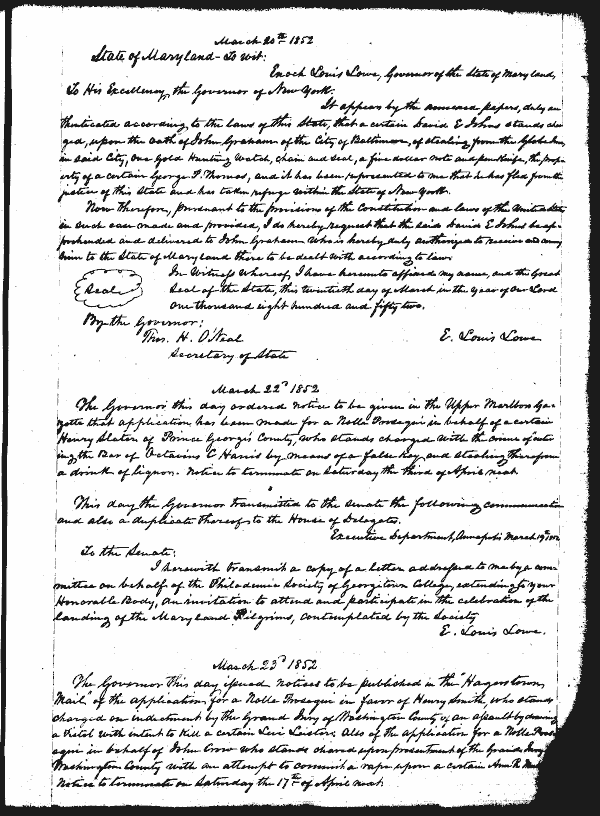 March 20th 1852
State of Maryland - To wit:
Enoch Louis Lowe, Governor of the State of Maryland,
To His Excellency, the Governor of New York:
It appears by the annexed papers, duly au
thenticated according to the laws of this State, that a certain David E Johns stands char
ged, upon the oath of John Graham of the City of Baltimore, of stealing from the Globe Inn,
in said City, one Gold Hunting Watch, chain and seal, a five dollar note and penknife, the prop
erty of a certain George F. Thomas, and it has been represented to me that he has fled from the
justice of this State and has taken refuge within the State of New York.
Now Therefore, pursuant to the provisions of the Constitution and laws of the United States
in such case made and provided, I do hereby request that the said David E Johns be ap=
prehended and delivered to John Graham who is hereby duly authorized to receive and convey
him to the State of Maryland there to be dealt with according to law
In Witness whereof, I have hereunto affixed my name, and the Great
Seal
Seal of the State, this twentieth day of March in the year of our Lord
one thousand eight hundred and fifty two.
By the Governor:
Thos. H. O'Neal
E. Louis Lowe
Secretary of State
March 22d 1852
The Governor this day ordered notice to be given in the Upper Marlboro Ga-
zette that application has been made for a Nolle Prosequi in behalf of a certain
Henry Slater of Prince George's County, who stands charged with the crime of enter
ing the Bar of Octavius C Harris by means of a false key and stealing therefrom
a drink of liquor. Notice to terminate on Saturday the third of April next
This day the Governor transmitted to the Senate the following communication
and also a duplicate thereof to the House of Delegates.
Executive Department, Annapolis March 19th 1852
To the Senate:
I herewith transmit a copy of a letter addressed to me by a com
mittee on behalf of the Philodemic Society of Georgetown College, extending to your
Honorable Body, an invitation to attend and participate in the celebration of the
landing of the Maryland Pilgrims, contemplated by the Society
E. Louis Lowe.
March 23d 1852
The Governor this day issued notices to be published in the Hagerstown
Mail" of the application for a Nolle Prosequi in favor of Henry Smith, who stands
charged on indictment by the Grand Jury of Washington County of an assault by drawing
a Pistol with intent to kill a certain Levi Lister. Also of the application for a Nolle Pros
equi in behalf of John Crow who stands charged upon presentment of the Grand Jury
Washington County with an attempt to commit a rape upon a certain Ann R.
Notice to terminate on Saturday the 17th of April next.